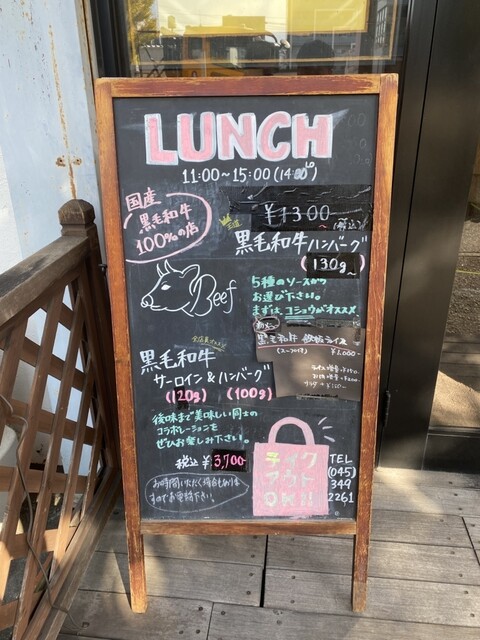 LUNCH
11:00〜15:00(14:00 LO)
国産
黒毛和牛
100%の店
¥1300
〜(税込)
黒毛和牛ハンバーグ
(130g〜)
Beef
5種のソースから
お選び下さい。
まずは、コショウがオススメ
黒毛和牛
¥2,000-
黒毛和牛
サーロイン&ハンバーグ
(120g) (100g)
後味まで美味しい同士の
コラボレーションを
ぜひお楽しみ下さい。
税込¥3,700-
お時間いただく場合も有りま
すのでお要時下さい。
テイク
アウト
OK!!
TEL
(045)
349
2261